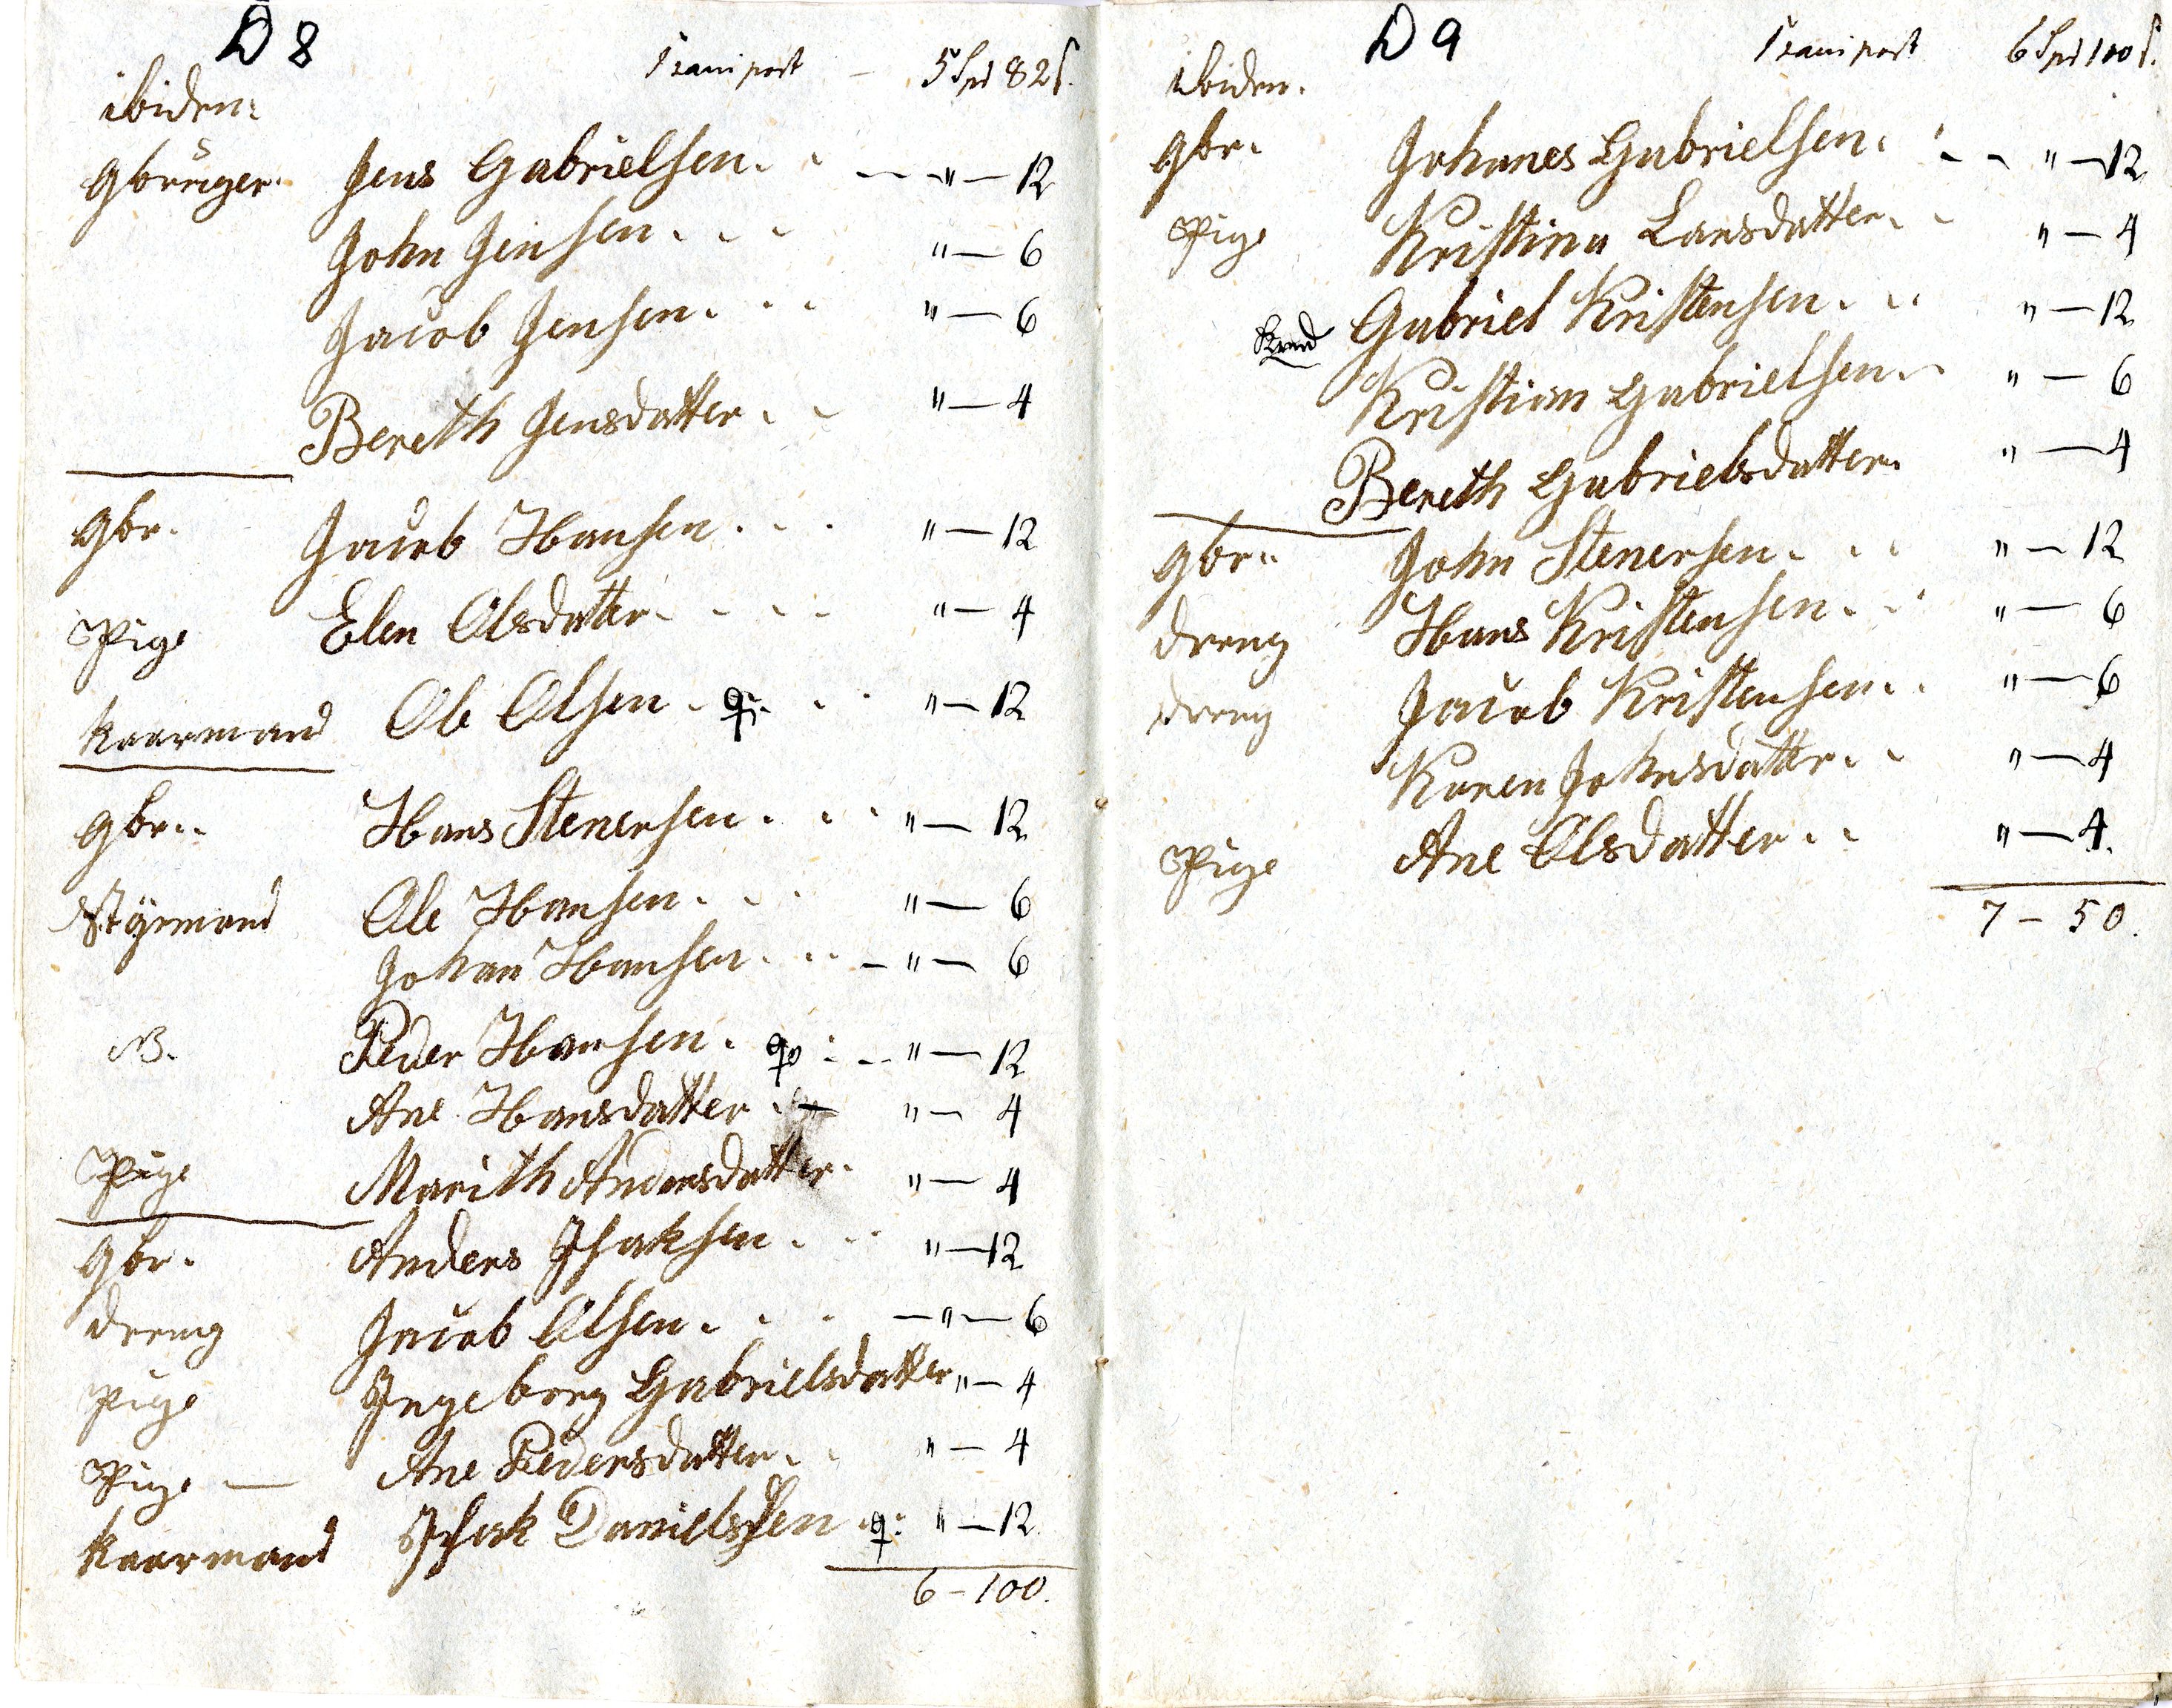 D 8
Transport — 5 Spd 82 s.
ibidem:
Gbruger. Jens Gabrielsen. . — — " — 12
John Jensen. . . " — 6
Jacob Jensen. . . " — 6
Bereth Jensdatter. . " — 4
Gbr. Jacob Hansen. . . " — 12
Pige Elen Olsdatter. . . . " — 4
Kaarmand Ole Olsen. q: . . " — 12
Gbr.. Hans Stenersen. . . " — 12
Styrmand Ole Hansen. . . " — 6
Johan Hansen. . . — " — 6
NB. Peder Hansen. q : . — " — 12
Ane Hansdatter . — " — 4
Pige Marith Andersdatter. " — 4
Gbr. Anders Isaksen. . . " — 12
dreng Jacob Olsen. . . — " — 6
Pige Ingeborg Gabrielsdatter " — 4
Pige — Ane Pedersdatter. . " — 4
Kaarmand Isak Danielssen . q: " — 12.
6 – 100.
D 9
Transport 6 Spd 100 s.
ibidem.
Gbr. Johanes Gabrielsen. . — — " — 12
Pige Kristina Larsdatter. . " — 4
Gabriel Kristensen. . . " — 12
Kristian Gabrielsen. . " — 6
Bereth Gabrielsdatter. " — 4
Gbr.. John Stenersen. . . " — 12
dreng Hans Kristensen. . . " — 6
dreng Jacob Kristensen. . " — 6
Karen Johnsdatter. . " — 4
Pige Ane Olsdatter. . " — 4.
7 – 50.